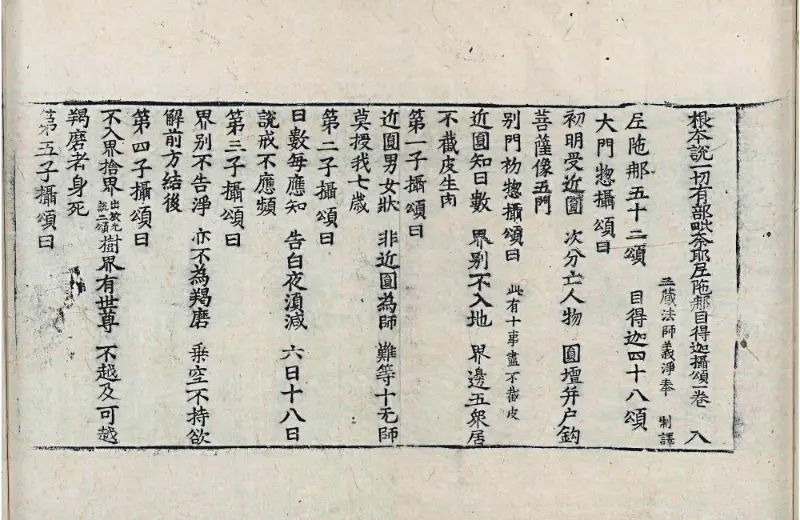 根本說一切有部毗奈耶尼陁那目得迦攝頌一卷 入
三藏法師義淨奉 制譯
尼陁那五十二頌 目得迦四十八頌
大門惣攝頌曰
初明受近圓 次分亡人物 圓壇并户鈎
菩薩像五門
別門初惣攝頌曰 此有十事盡不截皮
近圓知日數 界别不入地 界邊五衆居
不截皮生肉
第一子攝頌曰
近圓男女狀 非近圓為師 難等十无師
莫授我七歲
第二子攝頌曰
日數每應知 告白夜湏減 六日十八日
說戒不應頻
第三子攝頌曰
界別不告淨 亦不為羯磨 乗空不持欲
解前方結後
第四子攝頌曰
不入界捨界 樹界有世尊 不越及可越
羯磨者身死
第五子攝頌曰